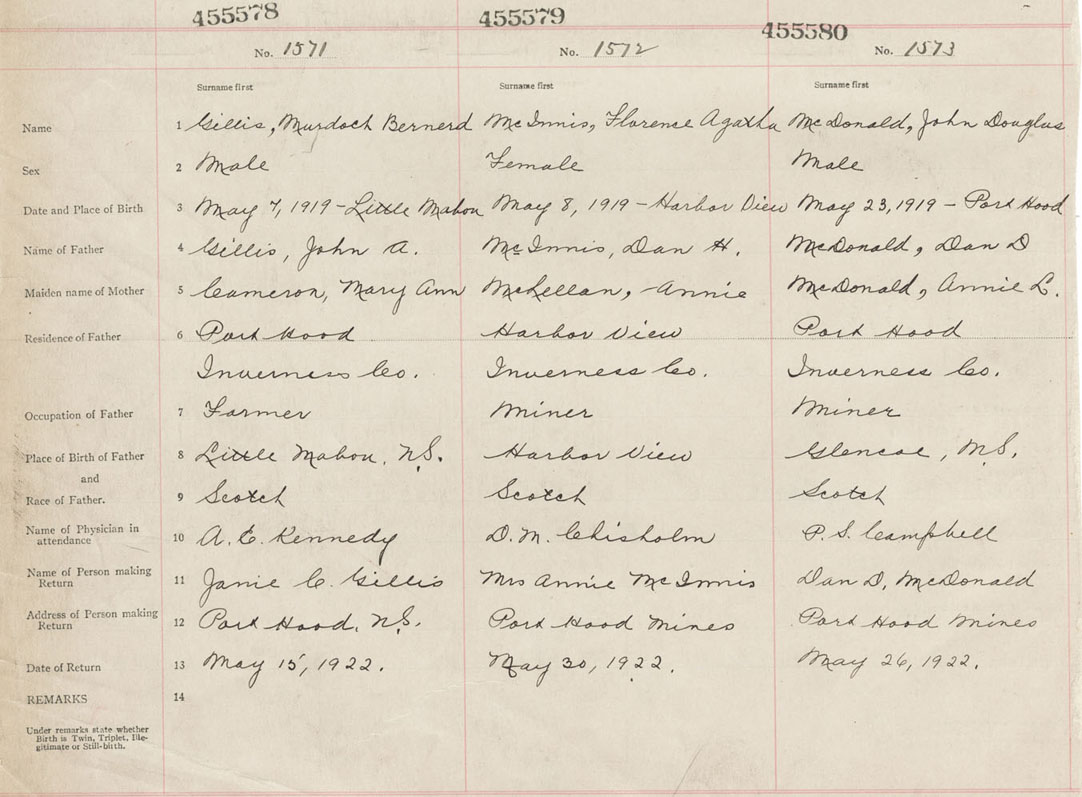 455578 455579 455580
No. 1571 No. 1572 No. 1573
Surname first Surname first Surname first
Name 1 Gillis, Murdoch Bernerd McInnis, Florence Agatha McDonald, John Douglas
Sex 2 Male Female Male
Date and Place of Birth 3 May 7, 1919 - Little Mabou May 8, 1919 - Harbor View May 23, 1919 - Port Hood
Name of Father 4 Gillis, John A. McInnis, Dan H. McDonald, Dan D
Maiden name of Mother 5 Cameron, Mary Ann McLellan, Annie McDonald, Annie L.
Residence of Father 6 Port Hood Harbor View Port Hood
Inverness Co. Inverness Co. Inverness Co.
Occupation of Father 7 Farmer Miner Miner
Place of Birth of Father 8 Little Mabou, N.S. Harbor View Glencoe, N.S.
and
Race of Father. 9 Scotch Scotch Scotch
Name of Physician in
attendance 10 A. E. Kennedy D. M. Chisholm P. S. Campbell
Name of Person making
Return 11 Janie C. Gillis Mrs Annie McInnis Dan D. McDonald
Address of Person making
Return 12 Port Hood, N.S. Port Hood Mines Port Hood Mines
Date of Return 13 May 15, 1922. May 30, 1922. May 26, 1922.
REMARKS 14
Under remarks state whether
Birth is Twin, Triplet, Ille-
gitimate or Still-birth.